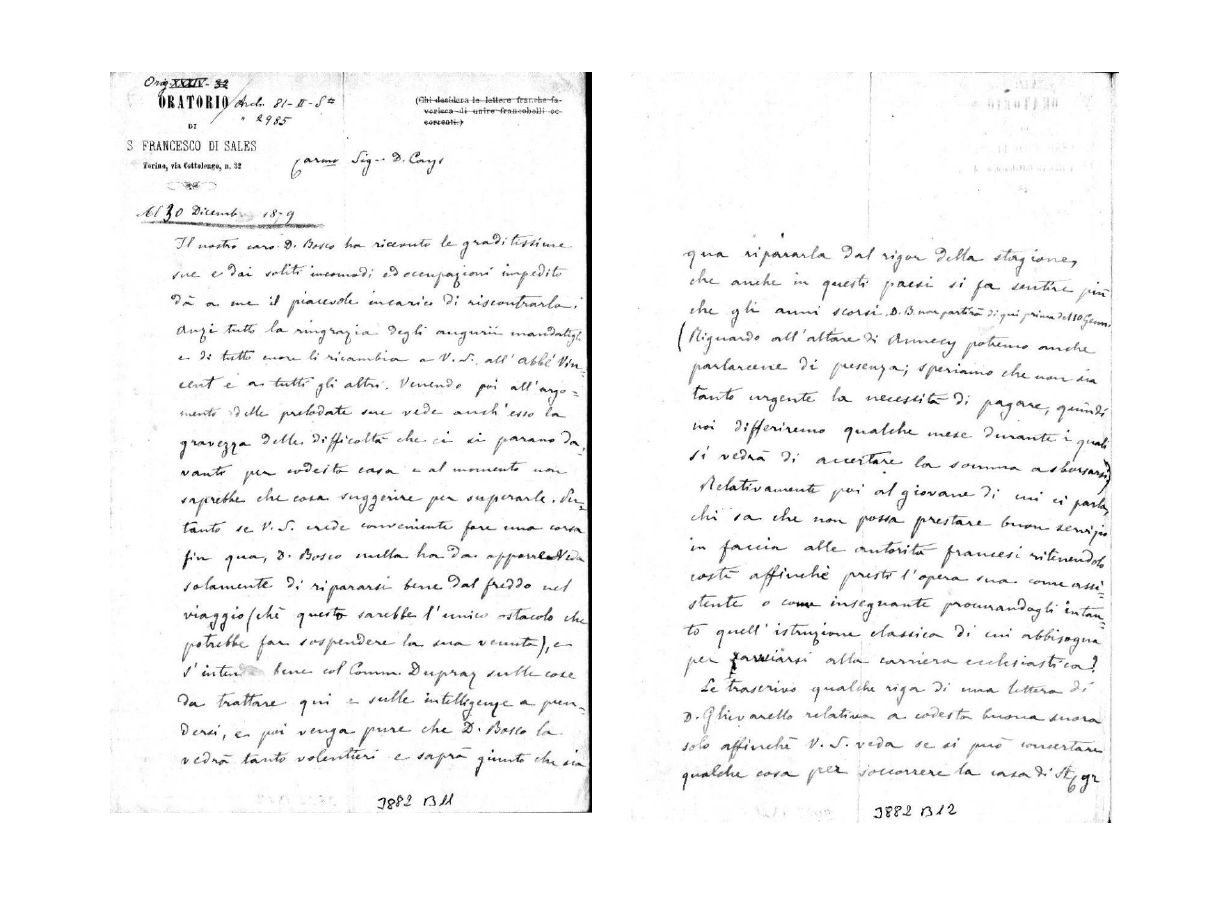 Orig. XXXIV - 32
ORATORIO Arch. 81-II-S
" 2985
DI
S. FRANCESCO DI SALES
Torino, via Cottolengo, n. 32
(Chi desidera le lettere franche fa-
vorisca di unire francobolli oc-
correnti.)
Carmo Sig. D. Cays
Al 30 Dicembre 18-9
Il nostro caro D. Bosco ha ricevuto le graditissime
sue e dai soliti incomodi ed occupazioni impedito
dà a me il piacevole incarico di riscontrarla.
Anzi tutto la ringrazia degli augurii mandatigli
e di tutto cuore li ricambia a V. S. all' abbé Vin-
cent e a tutti gli altri. Venendo poi all' argo-
mento delle prelodate sue vede anch' esso la
gravezza delle difficoltà che ci si parano da-
vanto per codesta casa e al momento non
saprebbe che cosa suggerire per superarle. Per-
tanto se V. S. crede conveniente fare una corsa
fin qua, D. Bosco nulla ha da apporre. Veda
solamente di ripararsi bene dal freddo nel
viaggio (chè questo sarebbe l' unico ostacolo che
potrebbe far sospendere la sua venuta), e
s' inten bene col Comm. Dupraz sulle cose
da trattare qui e sulle intelligenze a pren-
dersi, e poi venga pure che D. Bosco la
vedrà tanto volentieri e saprà giunto che sia
3882 B11
qua ripararla dal rigor della stagione,
che anche in questi paesi si fa sentire più
che gli anni scorsi. D. B. non partirà di qui prima del 10 Genn.
(Riguardo all' altare di Annecy potremo anche
parlarcene di presenza; speriamo che non sia
tanto urgente la necessità di pagare, quindi
noi differiremo qualche mese durante i quali
si vedrà di accertare la somma a sborsarsi)
Relativamente poi al giovane di cui ci parla,
chi sa che non possa prestare buon servizio
in faccia alle autorità francesi ritenendolo
costì affinchè presti l' opera sua come assi-
stente o come insegnante procurandogli intan-
to quell' istruzione classica di cui abbisogna
per avviarsi alla carriera ecclesiastica?
Le trascrivo qualche riga di una lettera di
D. Ghivarello relativa a codesta buona suora
solo affinchè V. S. veda se si può concertare
qualche cosa per soccorrere la casa di
3882 B12